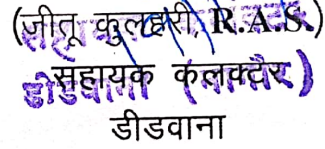 (जीतू कुलहरी, R.A.S.)
सहायक कलक्टर
डीडवाना